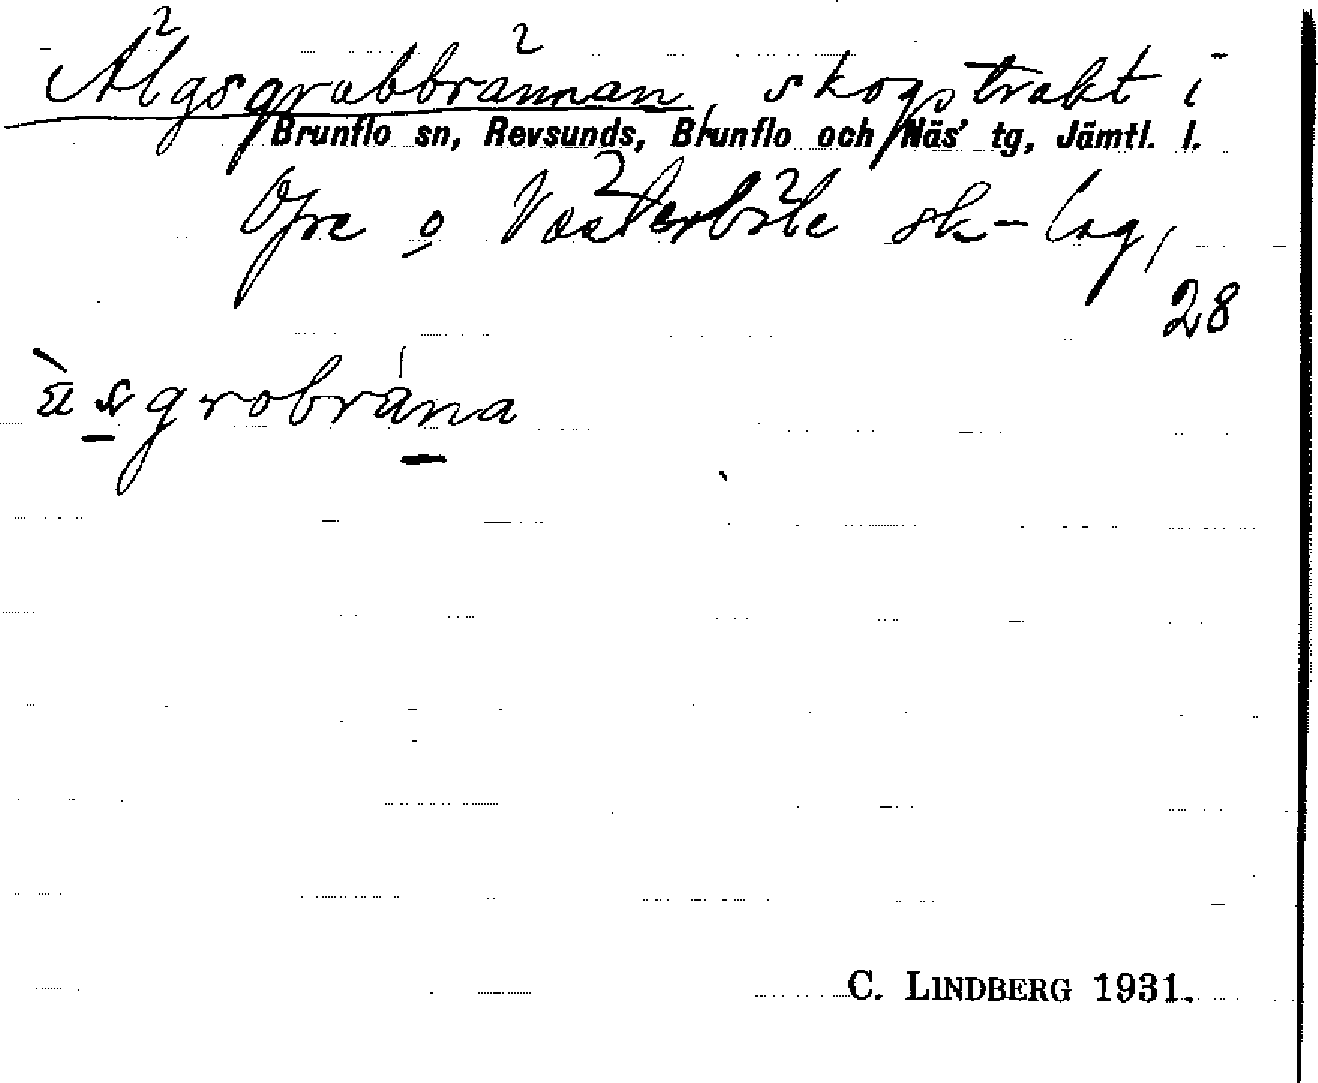 Älgsgrabbrännan, skogstrakt i
Brunflo sn, Revsunds, Brunflo och Näs' tg, Jämtl. l.
Opne o Västerböle sk-lag,
28
ὲsgrobrána
C. LINDBERG 1931.